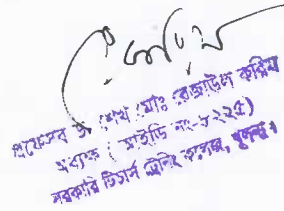 প্রফেসর ড. শেখ মোঃ রেজাউল করিম
অধ্যক্ষ ( আইডি নং-৮২২৫)
সরকারি টিচার্স ট্রেনিং কলেজ, খুলনা।